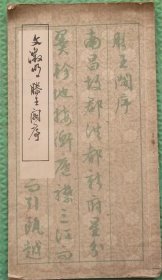 文徵明滕王阁序
滕王閣序
南昌故郡洪都新府星分
翼軫地接衡廬襟三江而
而引甌越